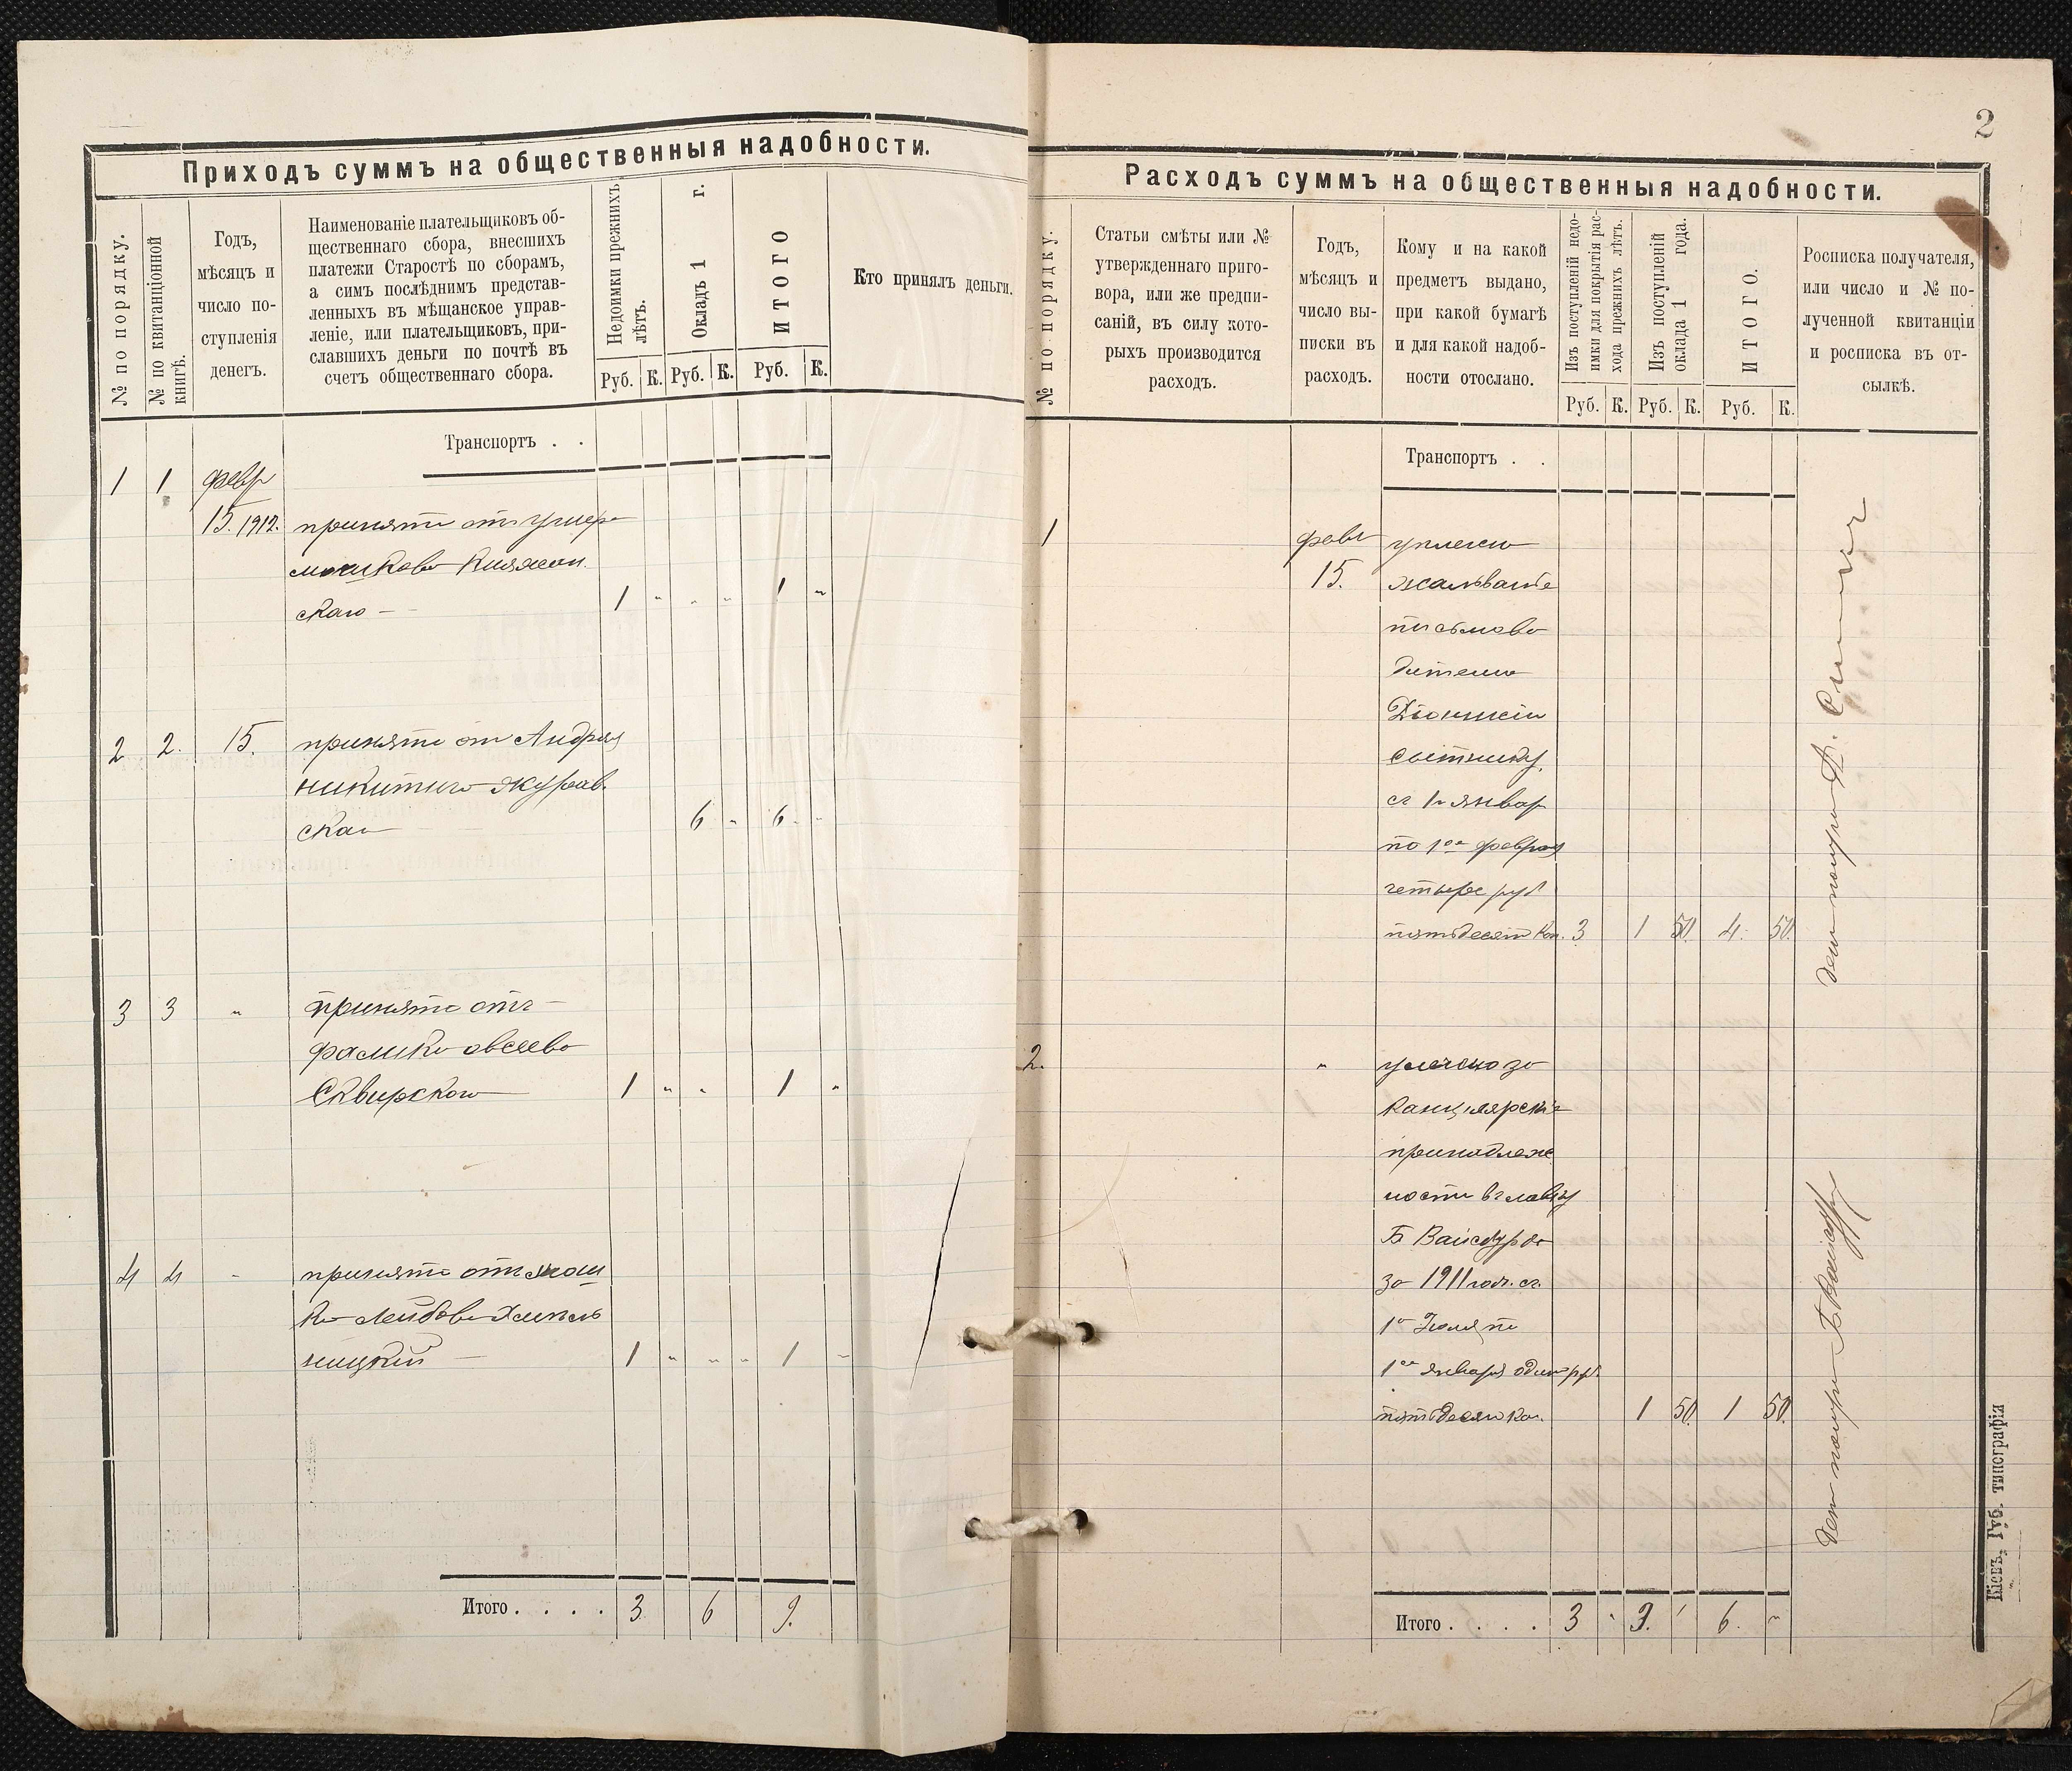 Приходъ суммъ на общественныя надобности.
№ по порядку.
№ по квитанціонной
книгѣ.
Годъ,
мѣсяцъ и
число по-
ступленія
денегъ.
Наименованіе плательщиковъ об-
щественнаго сбора, внесшихъ
платежи Старостѣ по сборамъ,
а симъ послѣднимъ представ-
ленныхъ въ мѣщанское управ-
леніе, или плательщиковъ, при-
славшихъ деньги по почтѣ въ
счетъ общественнаго сбора.
Недоимки прежнихъ
лѣтъ.
Окладъ 1 г.
ИТОГО
Кто принялъ деньги.
Руб. К. Руб. К. Руб. К.
Транспортъ . .
1 1 февр
15. 1912. принято отъ
скаго — 1 " " " 1 "
2 2. 15. принято от Андрея
никитина журав.
ска 6 " 6 "
3 3 " принято отъ
фалика овсеева
Сквирского 1 " " 1 "
4 4 " принято отъ
ка Лейбова Хмель
ницкий — 1 " " " 1 "
Итого . . . . 3 6 9.
2
Расходъ суммъ на общественныя надобности.
№ по порядку.
Статьи смѣты или №
утвержденнаго приго-
вора, или же предпи-
саній, въ силу кото-
рыхъ производится
расходъ.
Годъ,
мѣсяцъ и
число вы-
писки въ
расходъ.
Кому и на какой
предметъ выдано,
при какой бумагѣ
и для какой надоб-
ности отослано.
Изъ поступленій недо-
имки для покрытія рас-
хода прежнихъ лѣтъ.
Изъ поступленій
оклада 1 года.
ИТОГО.
Росписка получателя,
или число и № по-
лученной квитанціи
и росписка въ от-
сылкѣ.
Руб. К. Руб. К. Руб. К.
Транспортъ . .
1 февл
15. жалованье
письмово
дителю
с 1го январ
по 1ое февраля
четыре руб
пятьдесят коп. 3 1 50 4. 50.
2. "
Канцлярскіе
принадлеж
ности
Б Вайсбурда
за 1911 годъ. съ.
1о Іюля по
1ое января один руб.
пятьдесят коп. 1 50. 1 50.
Итого . . . . 3 3. 6. "
Кіевъ, Губ. типографія